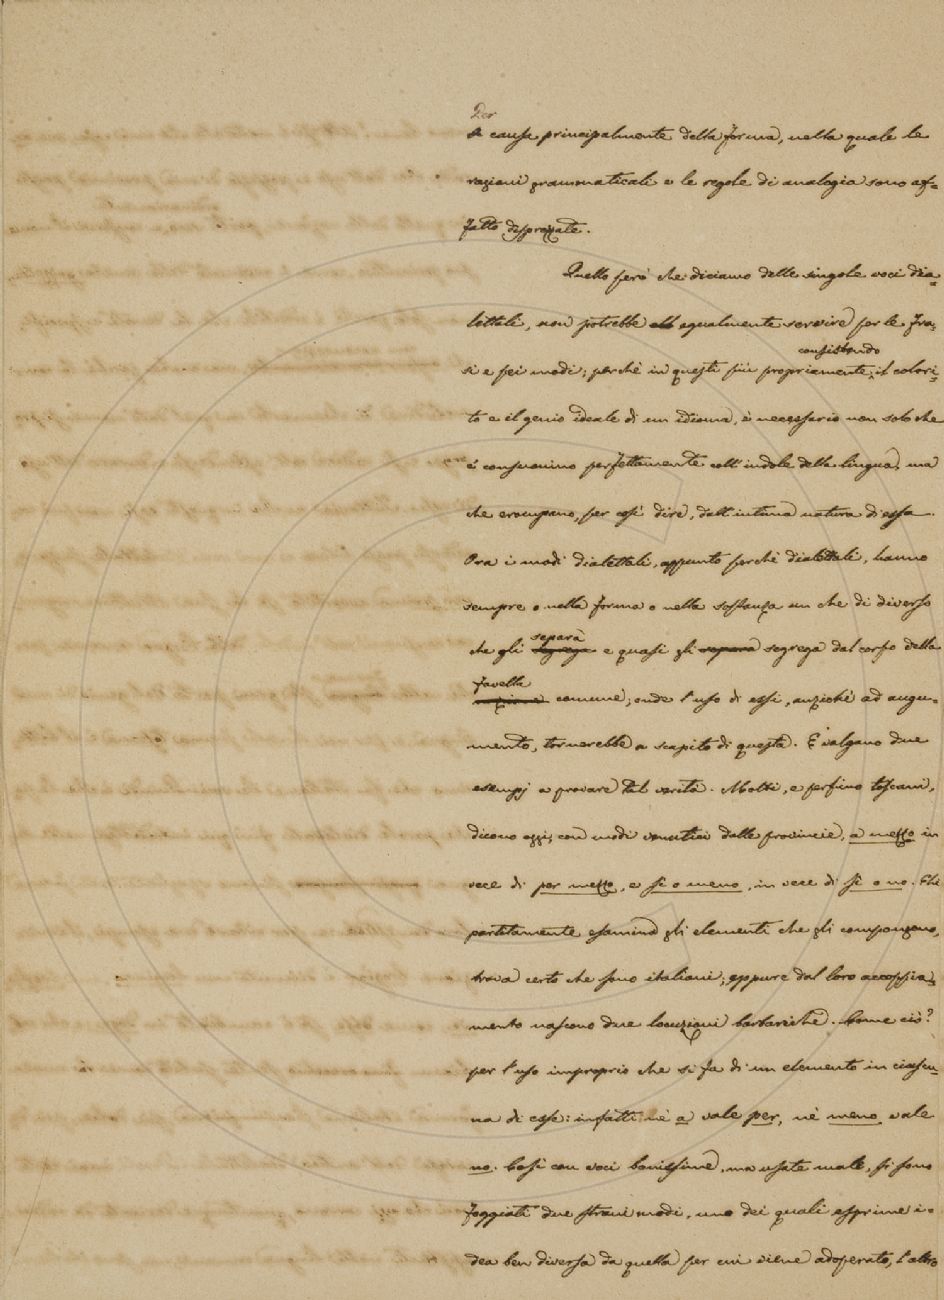 Per
a causa principalmente della forma, nella quale le
ragioni grammaticali e le regole di analogia sono af-
fatto disprezzate.
Quello però che diciamo delle singole voci dia-
lettali, non potrebbe egualmente servire per le fra-
consistendo
si e pei modi; perchè in questi più propriamente, il colori-
to e il genio ideale di un idioma, è necessario non solo che
e' consuonino perfettamente coll'indole della lingua, ma
che erompano, per così dire, dall'intima natura d'essa.
Ora i modi dialettali, appunto perchè dialettali, hanno
sempre o nella forma o nella sostanza un che di diverso
separa
che gli segrega e quasi gli separa segrega dal corpo della
favella
nazione comune; onde l'uso di essi, anzichè ad augu-
mento, tornerebbe a scapito di questa. E valgano due
esempj a provare tal verità. Molti, e perfino toscani,
dicono oggi, con modi venutici dalle provincie, a mezzo in
vece di per mezzo, e sì o meno, in vece di sì o no. Chi
partitamente esamina gli elementi che gli compongono,
trova certo che sono italiani; eppure dal loro accoppia-
mento nascono due locuzioni barbariche. Come ciò?
per l'uso improprio che si fa di un elemento in ciascu-
na di esse: infatti nè a vale per, nè meno vale
no. Così con voci bonissime, ma usate male, si sono
foggiati due strani modi, uno dei quali esprime i-
dea ben diversa da quella per cui viene adoperato, l'altro